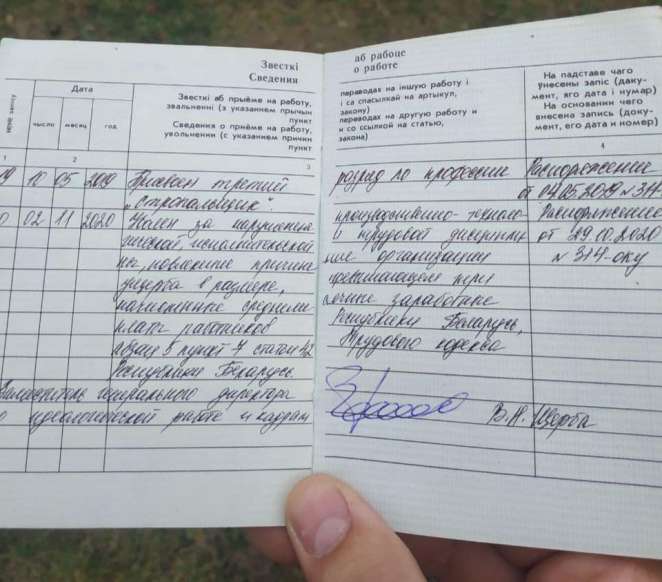 Звесткі
Сведения
Дата
число
месяц
год
Звесткі аб прыёме на работу,
звальненні (з указаннем прычын
пункт
Сведения о приёме на работу,
увольнении (с указанием причин
пункт
1
2
3
10 05 2019 Присвоен третий
„стропальщик".
02 11 2020 Уволен за нарушение
ической, исполнительской
ны, повлекшее причине
ущерба в размере,
начисленные средне
платы работников
абзац 5 пункт 7 статьи 42
Республики Беларусь
Заместитель генерального директора
идеологической работе и кадрам
аб рабоце
о работе
пераводах на іншую работу і
і са спасылкай на артыкул,
закону)
переводах на другую работу и
и со ссылкой на статью,
закона)
На падставе чаго
ўнесены запіс (даку-
мент, яго дата і нумар)
На основании чего
внесена запись (доку-
мент, его дата и номер)
4
разряд по профессии Распоряжение
от 04.05.2019 № 314
производственно-техноло- Распоряжение
и трудовой дисципли от 29.10.2020
ние организации № 314-оку
превышающем три
заработные
Республики Беларусь,
Трудового кодекса
В.Н. Щерба